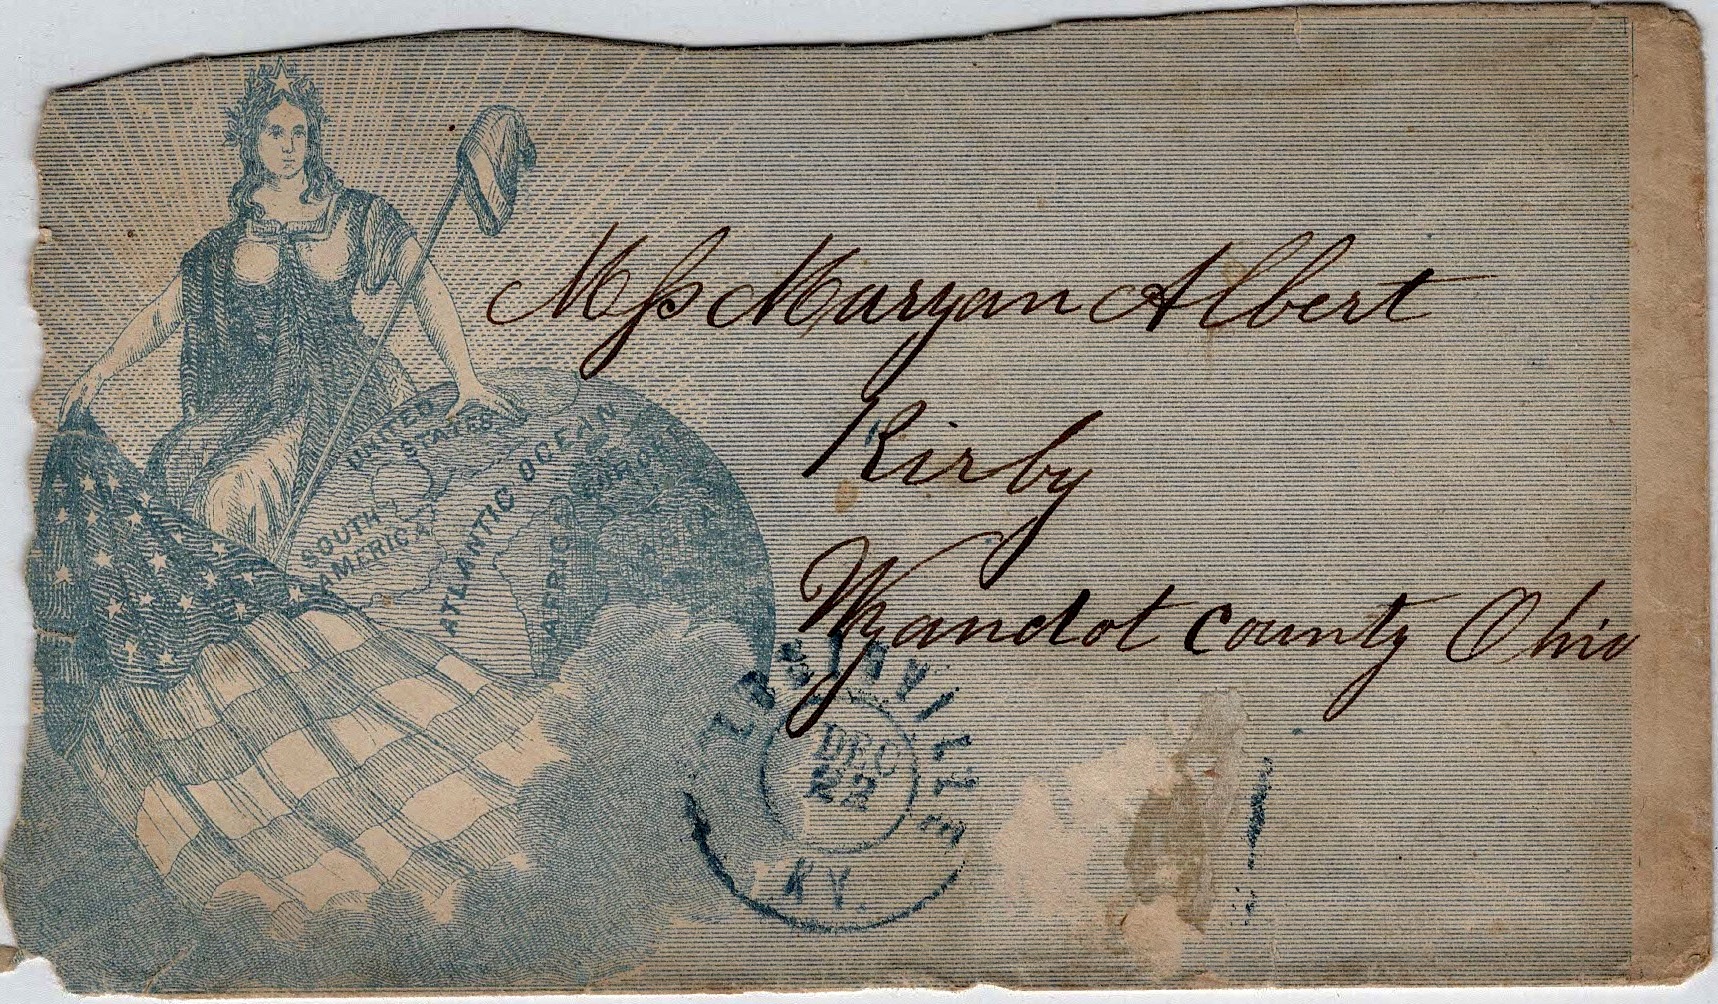 Miss Maryan Albert
Kirby
Wyandot County Ohio
UNITED
STATES
SOUTH
AMERICA
ATLANTIC OCEAN
AFRICA
EUROPE
ASIA
LOUISVILLE
DEC
22
KY.